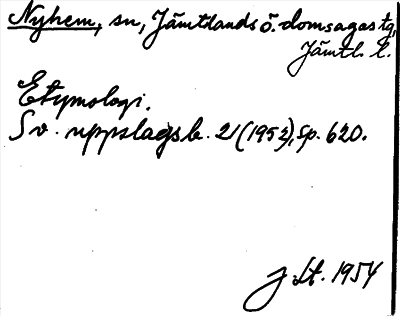 Nyhem, sn, Jämtlands ö. domsagas tg,
Jämtl. l.
Etymologi.
Sv. uppslagsb. 21 (1952), sp. 620.
J. St. 1954